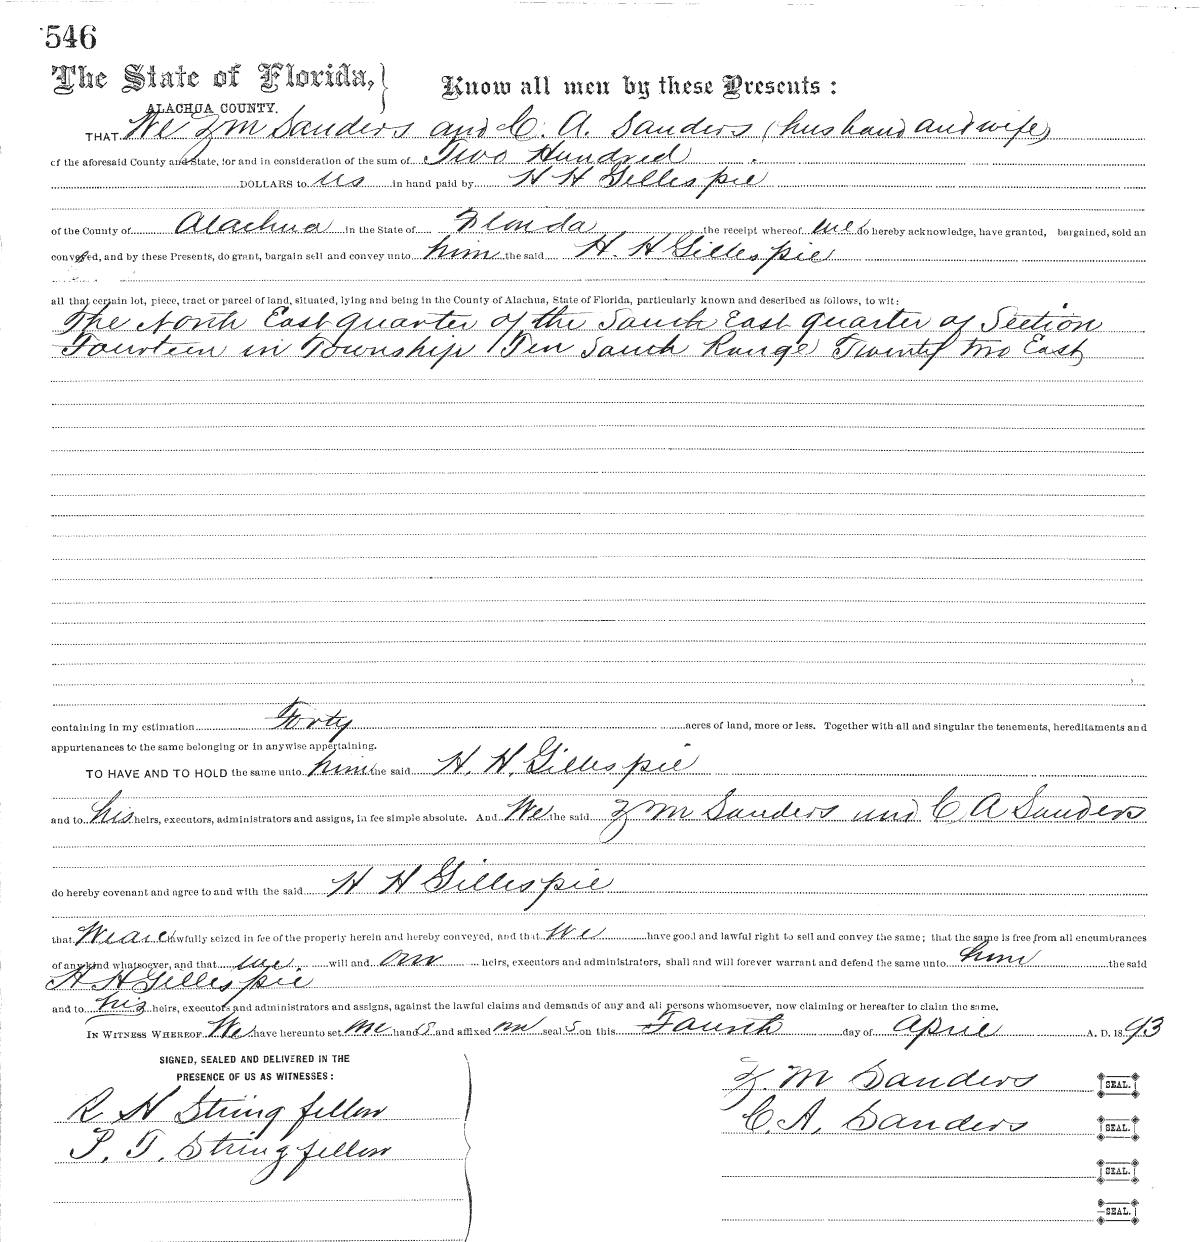 546
The State of Florida, } Know all men by these Presents :
ALACHUA COUNTY.
THAT We Z M Sanders and C. A. Sanders (husband and wife)
of the aforesaid County and State, for and in consideration of the sum of Two Hundred
DOLLARS to us in hand paid by H H Gillespie
of the County of Alachua in the State of Florida the receipt whereof we do hereby acknowledge, have granted, bargained, sold an
conveyed, and by these Presents, do grant, bargain sell and convey unto him the said H. H Gillespie
all that certain lot, piece, tract or parcel of land, situated, lying and being in the County of Alachua, State of Florida, particularly known and described as follows, to wit:
The North East quarter of the South East quarter of Section
Fourteen in Township Ten South Range Twenty two East
containing in my estimation Forty acres of land, more or less. Together with all and singular the tenements, hereditaments and
appurtenances to the same belonging or in anywise appertaining.
TO HAVE AND TO HOLD the same unto him the said H. H. Gillespie
and to his heirs, executors, administrators and assigns, in fee simple absolute. And We the said Z M Sanders and C A Sanders
do hereby covenant and agree to and with the said H H Gillespie
that We are lawfully seized in fee of the property herein and hereby conveyed, and that We have good and lawful right to sell and convey the same; that the same is free from all encumbrances
of any kind whatsoever, and that we will and our heirs, executors and administrators, shall and will forever warrant and defend the same unto him the said
H H Gillespie
and to his heirs, executors and administrators and assigns, against the lawful claims and demands of any and all persons whomsoever, now claiming or hereafter to claim the same.
IN WITNESS WHEREOF We have hereunto set our hands and affixed our seals on this Fourth day of April A. D. 1893
SIGNED, SEALED AND DELIVERED IN THE
PRESENCE OF US AS WITNESSES:
Z. M Sanders SEAL.
R H Stringfellow
C. A. Sanders SEAL.
P. T. Stringfellow
SEAL.
SEAL.